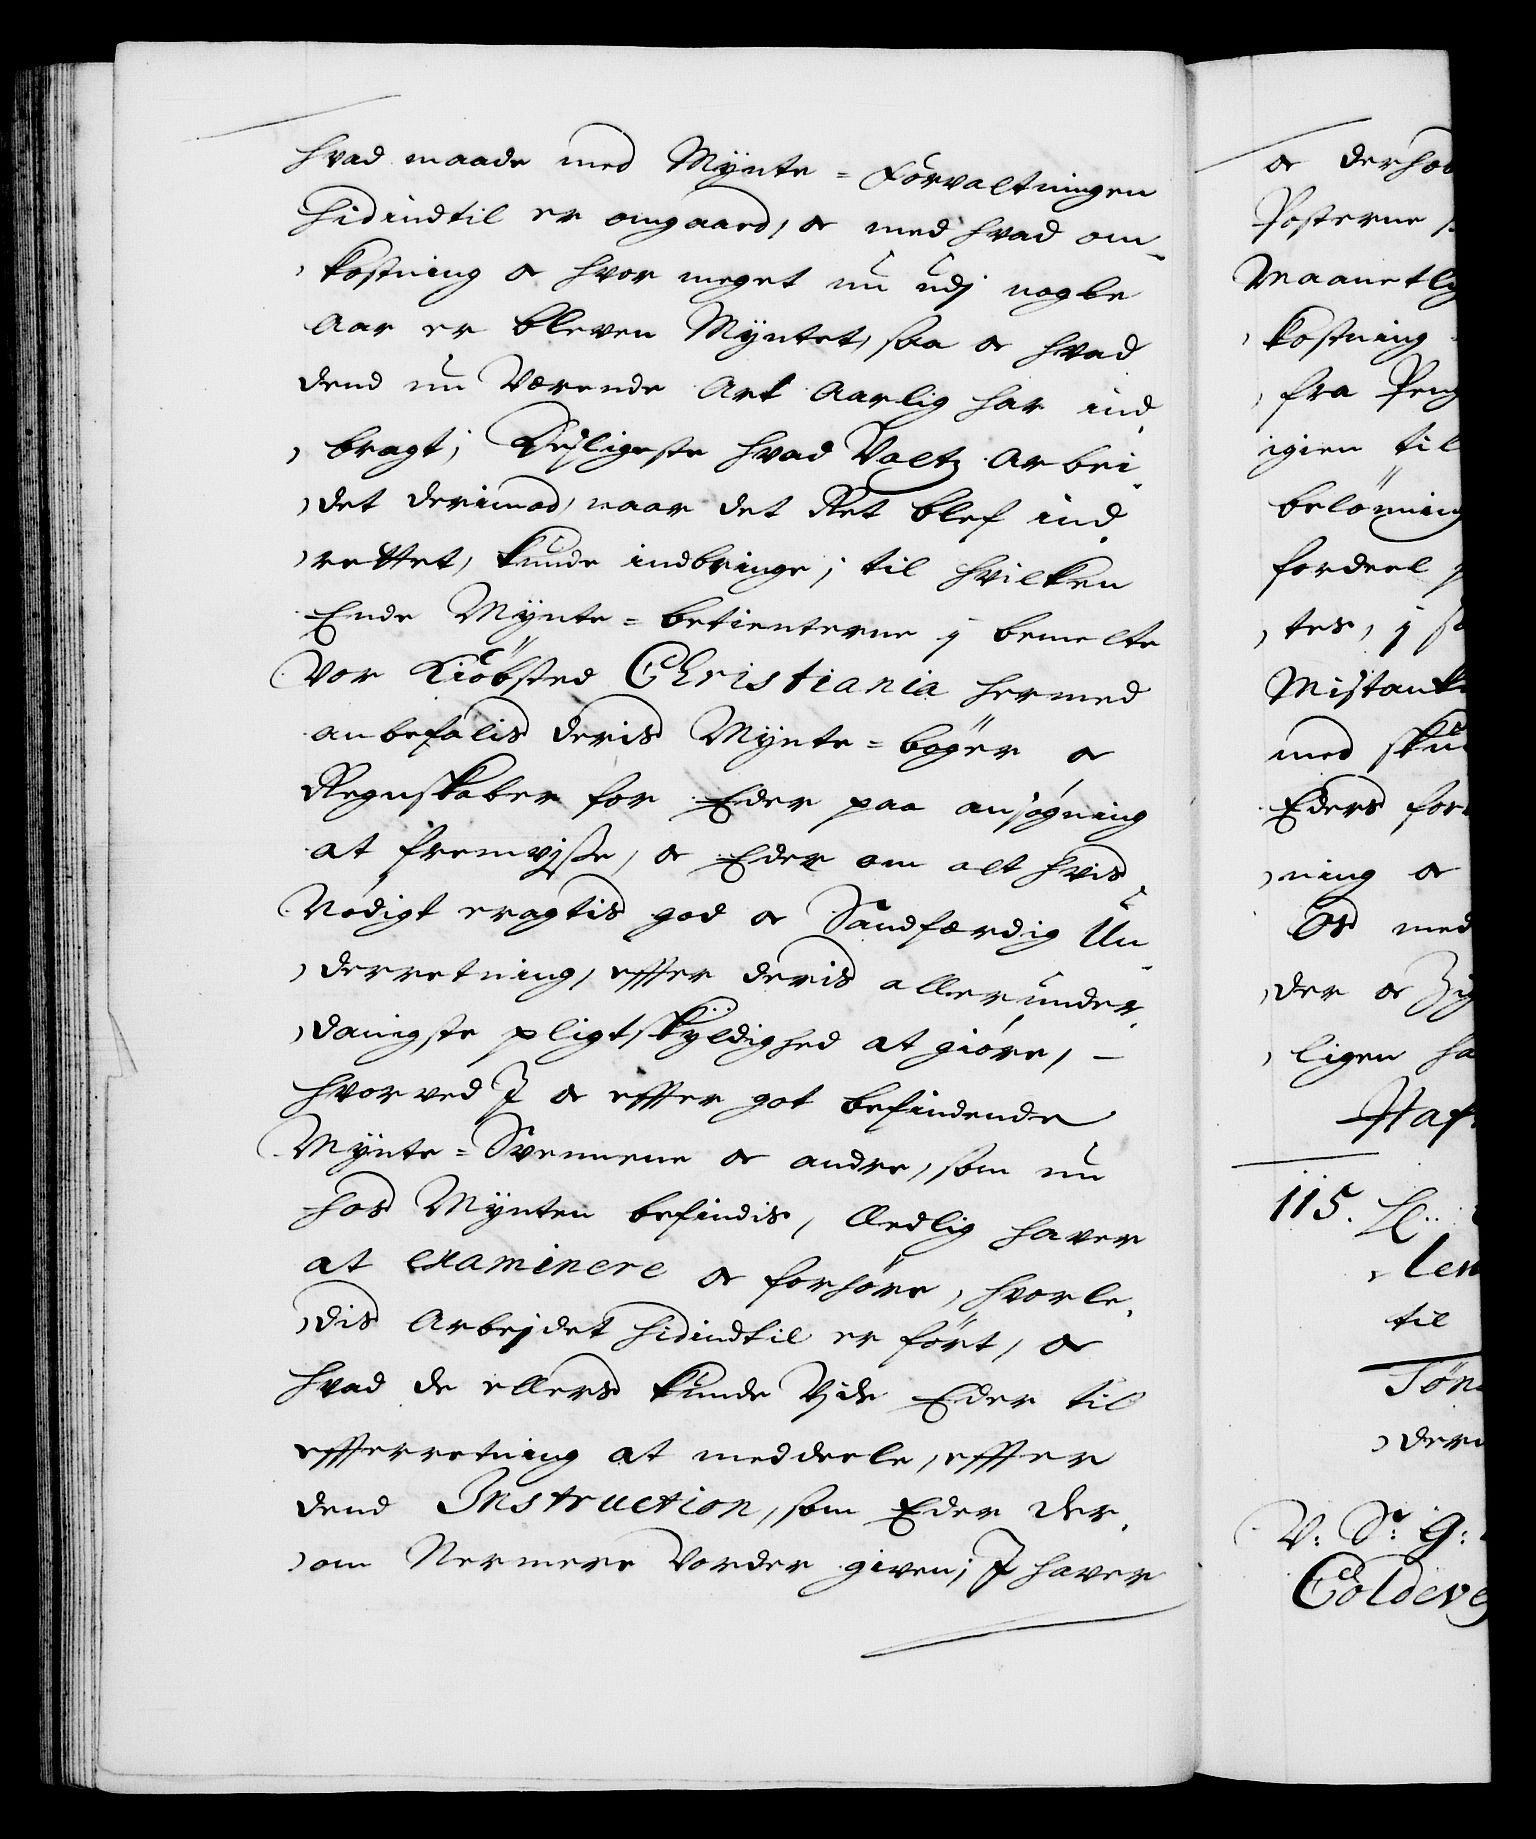 hvad maade med Mÿnte=Forvaltningen
hidindtil er omgaaed, oc med hvad om-
kostning oc hvor meget nu udj nogle
Aar er bleven Mÿntet, saa oc hvad
dend nu Værende Art Aarlig har ind-
bragt; Desligeste hvad Valtz Arbei-
det derimod, naar det Ret blef ind-
rettet, kunde indbringe; til hvilken
Ende Mÿnte=betienterne j bemelte
Vor Kiöbsted Christiania hermed
anbefalis deris Mÿnte=bøger oc
Regnskaber for Eder paa ansøgning
at fremvjsse, oc Eder om alt hvis
Nødigt eragtis god oc Sandfærdig Un-
derretning, effter deris allerunder-
danigste pligtskÿldighed at giøre, -
hvorved J oc effter got befindende
Mÿnte=Svennene oc andre, som nu
hos Mÿnten befindis, Eedlig haver
at examinere oc forhöre, hvorle-
dis Arbejdet hidindtil er fört, oc
hvad de ellers kunde Vide Eder til
effterretning at meddeele, effter
dend Instruction, som Eder der-
om Nermere Vorder given; J haver
oc derhos
Posterne
Maanetlig
kostning
fra
igien til
belönning
fordeel
tes, j
Mistanke
med
Eders for
ning oc
Os med
der oc
ligen ha
Haf
115.
len
til
Tön
der
V: Sr: G:
Coldeve